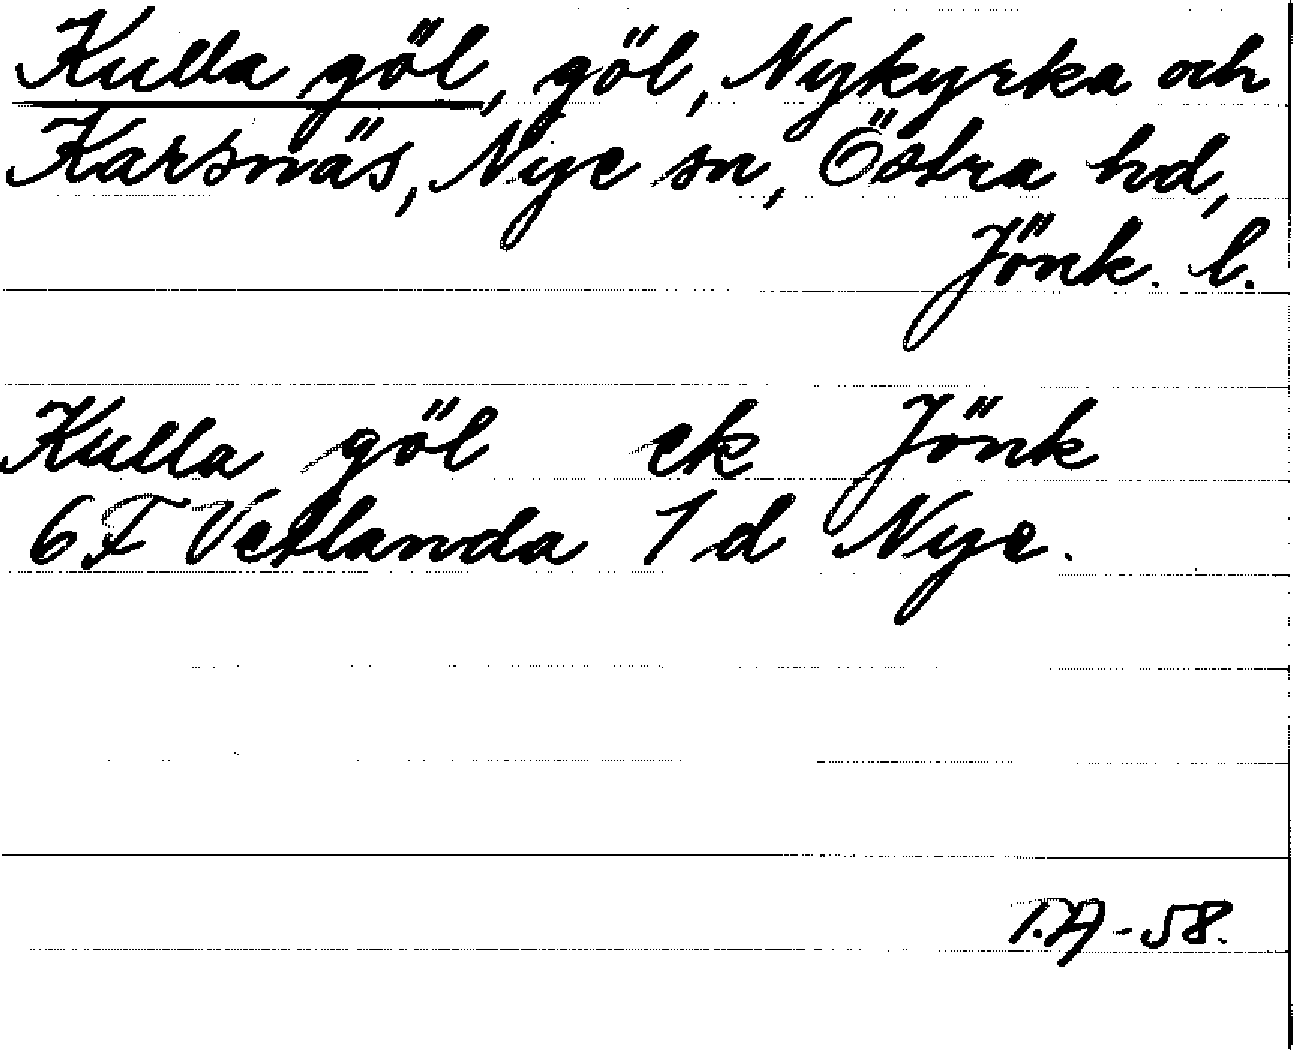 Kulla göl, göl, Nykyrka och
Karsnäs, Nye sn, Östra hd,
Jönk. l.
Kulla göl ek Jönk
6F Vetlanda 1d Nye.
T.A-58.